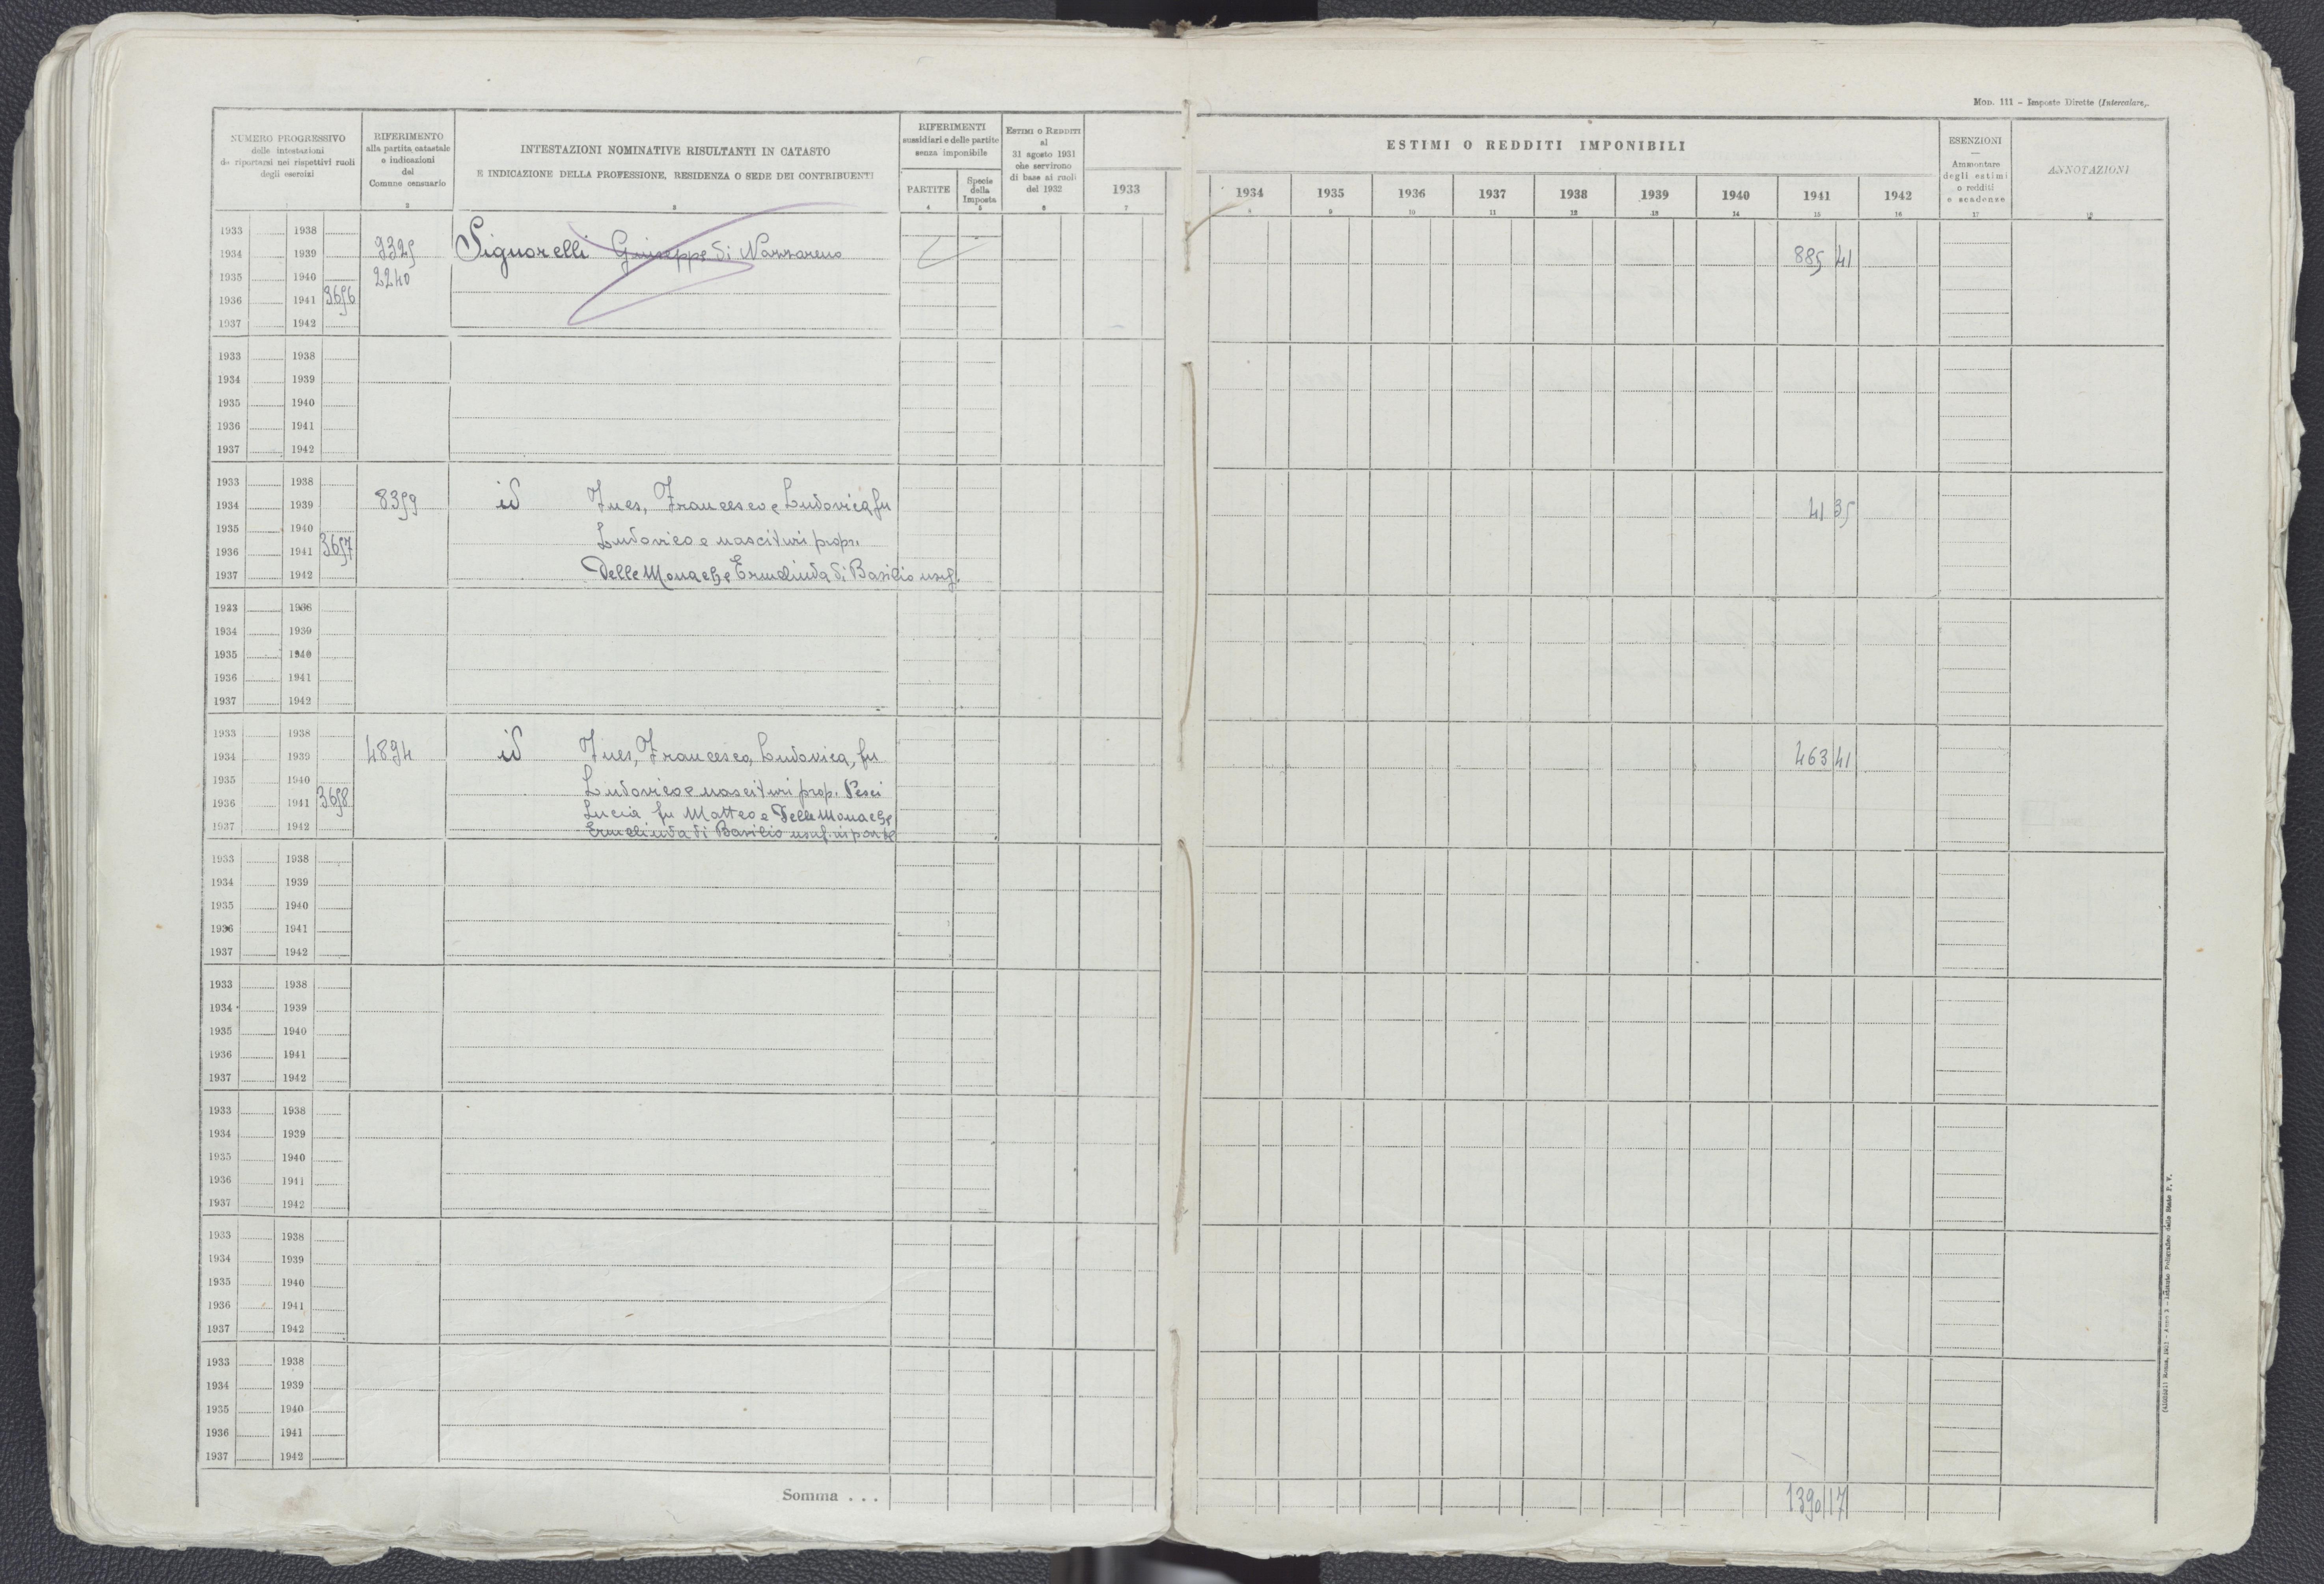 MOD. 111 - Imposte Dirette (Intercalare).
NUMERO PROGRESSIVO
delle intestazioni
da riportarsi nei rispettivi ruoli
degli esercizi
RIFERIMENTO
alla partita catastale
e indicazioni
del
Comune censuario
2
INTESTAZIONI NOMINATIVE RISULTANTI IN CATASTO
E INDICAZIONE DELLA PROFESSIONE, RESIDENZA O SEDE DEI CONTRIBUENTI
3
RIFERIMENTI
sussidiari e delle partite
senza imponibile
PARTITE
4
Specie
della
Imposta
5
ESTIMI O REDDITI
al
31 agosto 1931
che servirono
di base ai ruoli
del 1932
6
1933
7
ESTIMI O REDDITI IMPONIBILI
1934 1935 1936 1937 1938 1939 1940 1941 1942
8 9 10 11 12 13 14 15 16
ESENZIONI
—
Ammontare
degli estimi
o redditi
e scadenze
17
ANNOTAZIONI
18
1933 1938
1934 1939 9325 Signorelli Giuseppe di Nazzareno 885 41
1935 1940 2240
1936 1941 3656
1937 1942
1933 1938
1934 1939
1935 1940
1936 1941
1937 1942
1933 1938
1934 1939 8359 id Ines, Francesco e Ludovica fu 41 35
1935 1940 Ludovico e nascituri propr.
1936 1941 3657
1937 1942 Delle Monache Ermelinda di Basilio usuf.
1933 1938
1934 1939
1935 1940
1936 1941
1937 1942
1933 1938
1934 1939 4894 id Ines, Francesco, Ludovica, fu 463 41
1935 1940 Ludovico e nascituri prop. Pesci
1936 1941 3658 Lucia fu Matteo e Delle Monache
1937 1942 Ermelinda di Basilio usuf. in parte
1933 1938
1934 1939
1935 1940
1936 1941
1937 1942
1933 1938
1934 1939
1935 1940
1936 1941
1937 1942
1933 1938
1934 1939
1935 1940
1936 1941
1937 1942
1933 1938
1934 1939
1935 1940
1936 1941
1937 1942
1933 1938
1934 1939
1935 1940
1936 1941
1937 1942
Somma . . . 1390 17